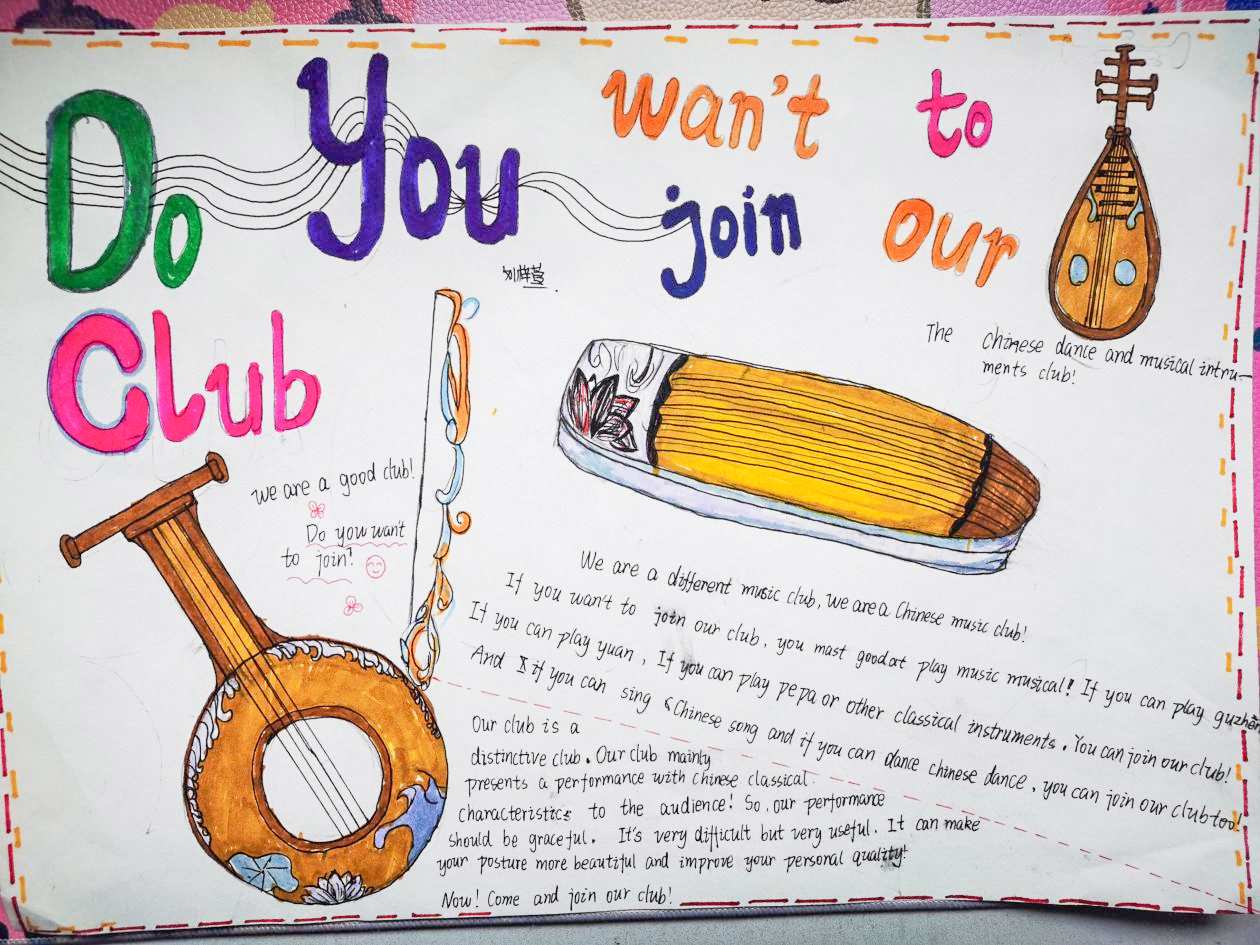 Do You wan't to
join our
Club
The chinese dance and musical intru-
ments club!
We are a good club!
Do you want
to join!
We are a different music club, we are a Chinese music club!
If you wan't to join our club, you mast good at play music musical! If you can play guzhen
If you can play yuan, If you can play pepa or other classical instruments. You can join our club!
And if you can sing Chinese song and if you can dance chinese dance, you can join our club too!
Our club is a
distinctive club. Our club mainly
presents a performance with chinese classical.
characteristics to the audience! So, our performance
should be graceful. It's very difficult but very useful. It can make
your posture more beautiful and improve your personal quality!
Now! Come and join our club!